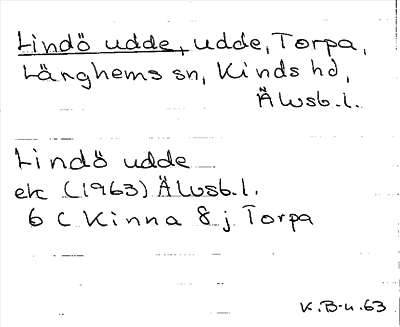 Lindö udde, udde, Torpa,
Länghems sn, Kinds hd,
Älvsb. l.
Lindö udde
ek (1963) Älvsb. l.
6 C Kinna 8 j Torpa
K. B-n. 63